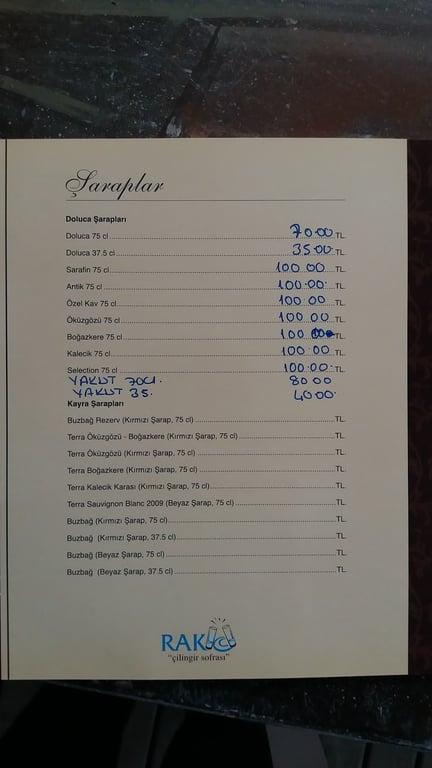 Şaraplar
Doluca Şarapları
Doluca 75 cl 70.00 TL
Doluca 37.5 cl 35.00 TL
Sarafin 75 cl 100 00 TL
Antik 75 cl 100.00 TL
Özel Kav 75 cl 100 00 TL
Öküzgözü 75 cl 100 00 TL
Boğazkere 75 cl 100 00 TL
Kalecik 75 cl 100 00 TL
Selection 75 cl 100.00 TL
YAKUT 70cl. 80 00
YAKUT 35. 40 00
Kayra Şarapları
Buzbağ Rezerv (Kırmızı Şarap, 75 cl) TL
Terra Öküzgözü - Boğazkere (Kırmızı Şarap, 75 cl) TL
Terra Öküzgözü (Kırmızı Şarap, 75 cl) TL
Terra Boğazkere (Kırmızı Şarap, 75 cl) TL
Terra Kalecik Karası (Kırmızı Şarap, 75 cl) TL
Terra Sauvignon Blanc 2009 (Beyaz Şarap, 75 cl) TL
Buzbağ (Kırmızı Şarap, 75 cl) TL
Buzbağ (Kırmızı Şarap, 37.5 cl) TL
Buzbağ (Beyaz Şarap, 75 cl) TL
Buzbağ (Beyaz Şarap, 37.5 cl) TL
RAK
"çilingir sofrası"